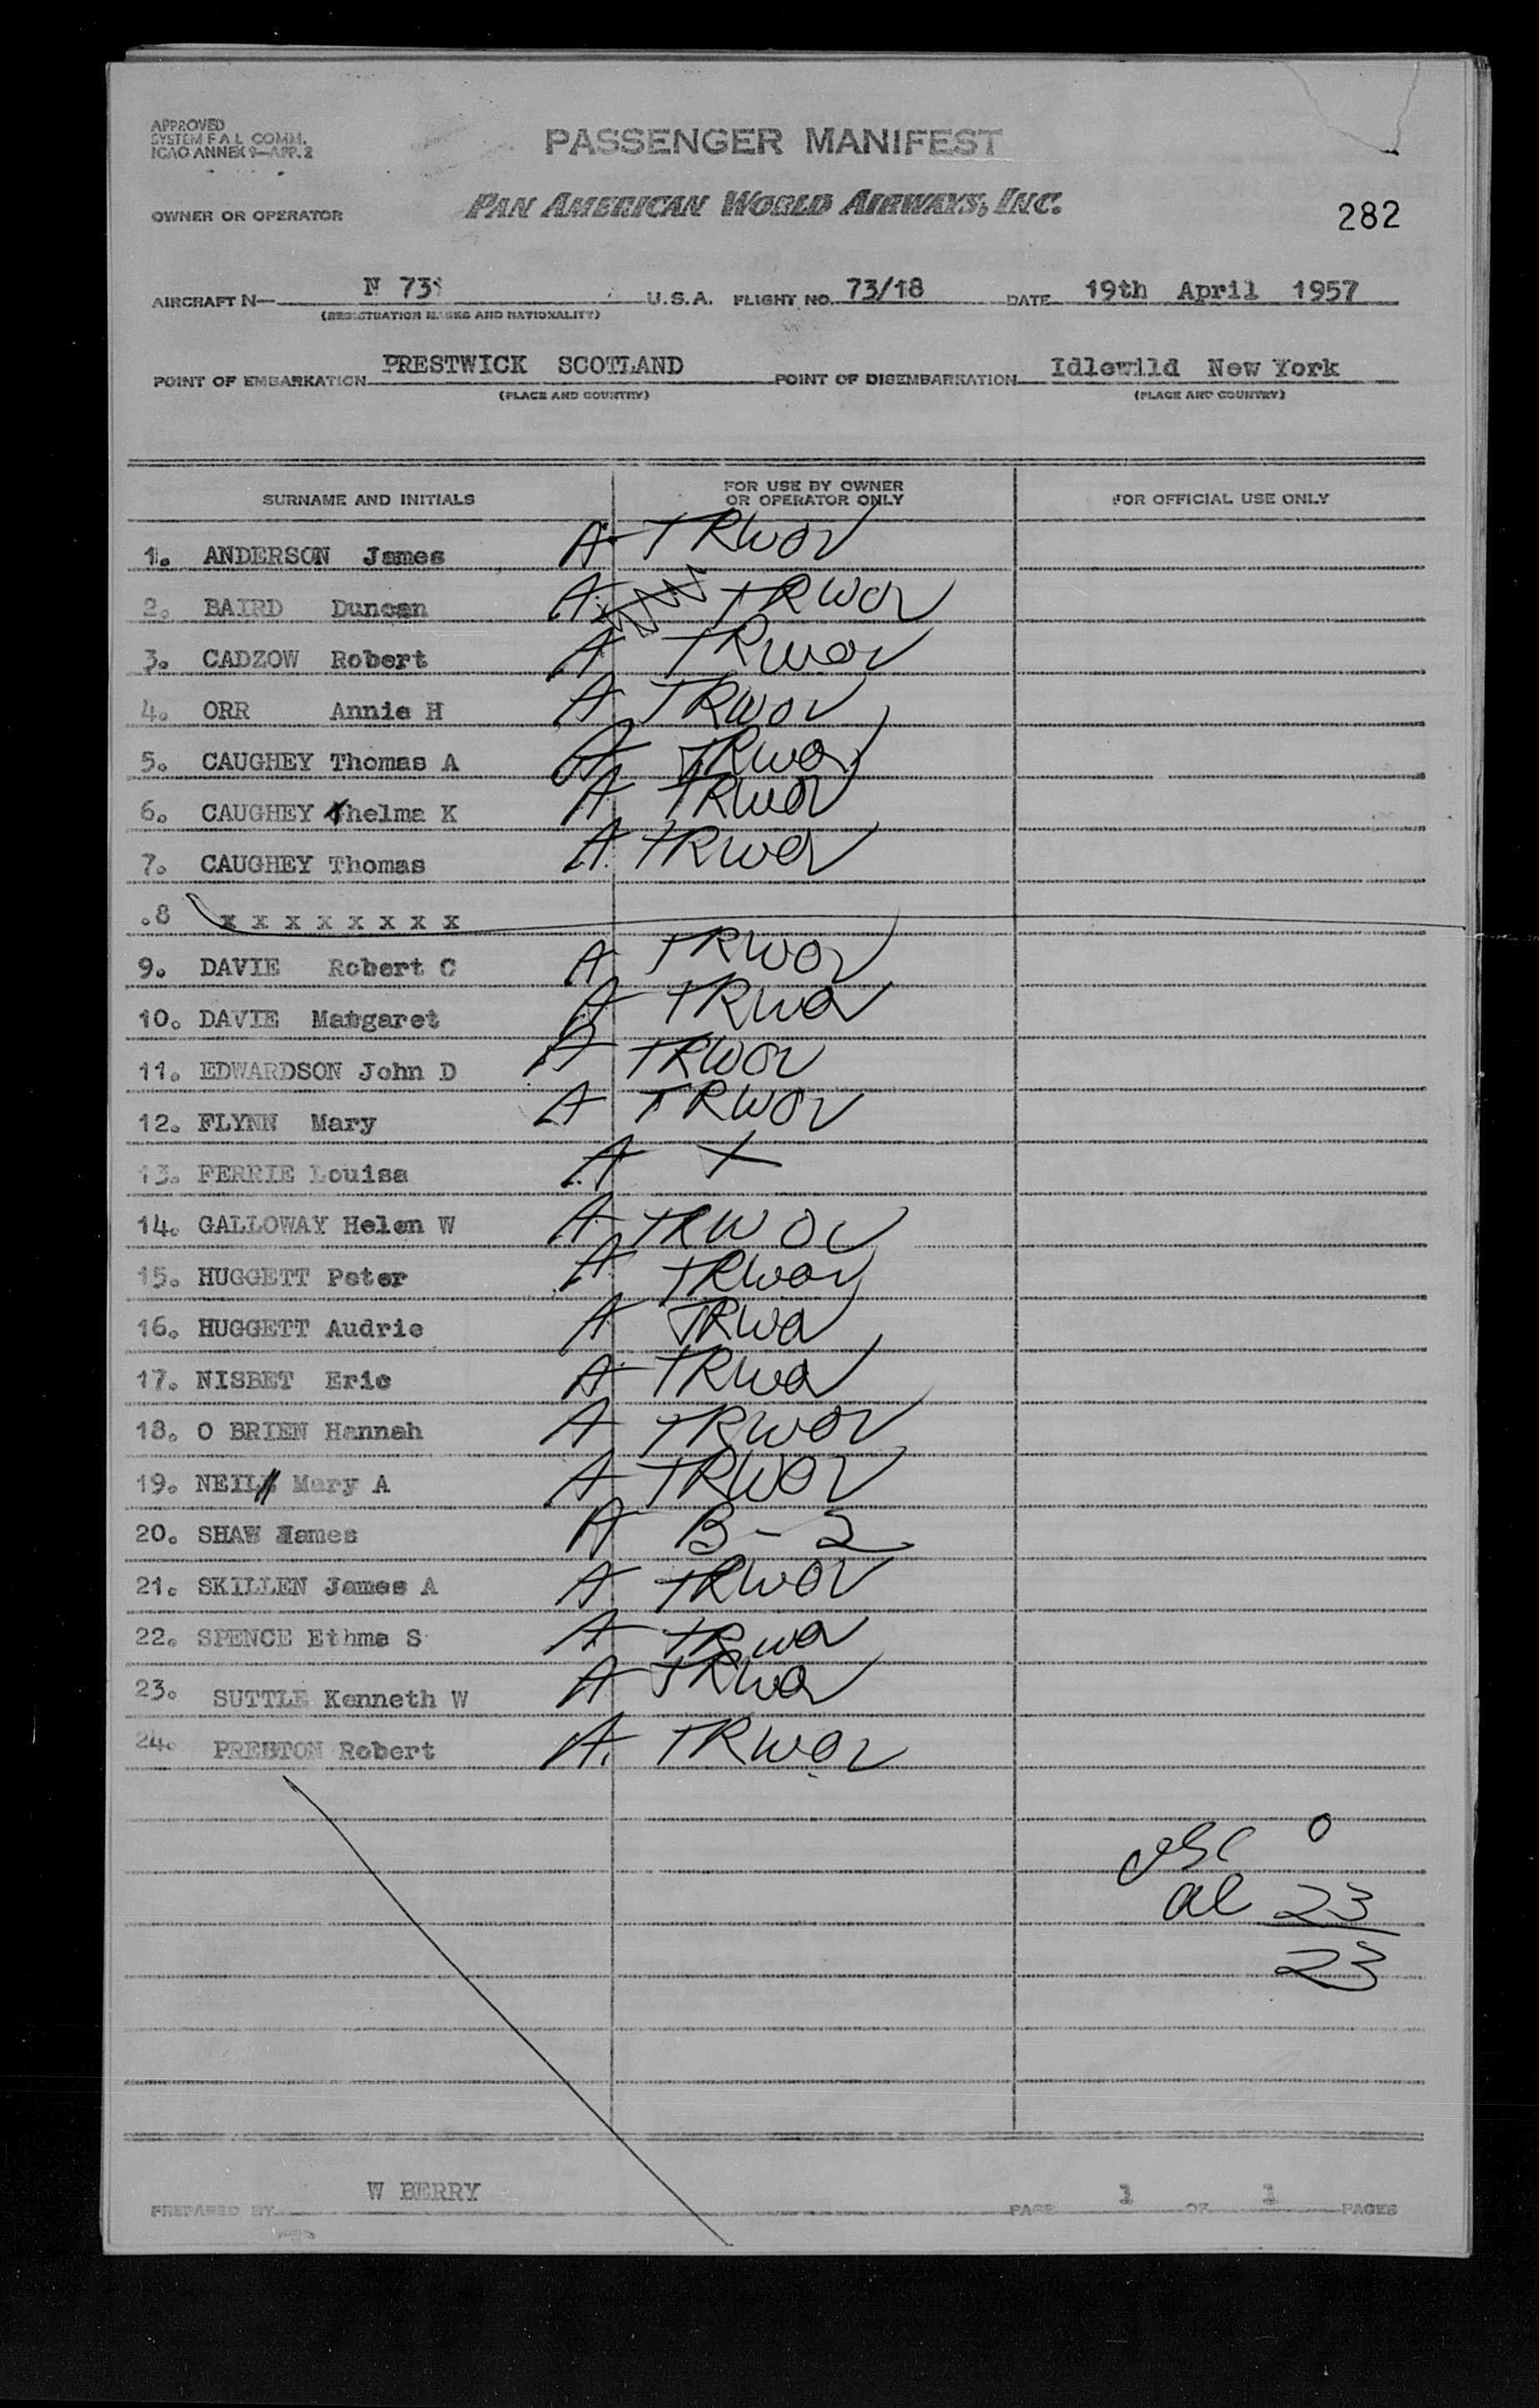 APPROVED
SYSTEM F A L COMM.
ICAO ANNEX 9—APP. 2
PASSENGER MANIFEST
OWNER OR OPERATOR PAN AMERICAN WORLD AIRWAYS, INC.
282
AIRCRAFT N— N 73 U.S.A. FLIGHT NO. 73/18 DATE 19th April 1957
(REGISTRATION MARKS AND NATIONALITY)
POINT OF EMBARKATION PRESTWICK SCOTLAND POINT OF DISEMBARKATION Idlewild New York
(PLACE AND COUNTRY) (PLACE AND COUNTRY)
SURNAME AND INITIALS FOR USE BY OWNER OR OPERATOR ONLY FOR OFFICIAL USE ONLY
1. ANDERSON James A TRWOV
2. BAIRD Duncan A TRWOV
3. CADZOW Robert A TRWOV
4. ORR Annie H A TRWOV
5. CAUGHEY Thomas A A TRWOV
6. CAUGHEY Thelma K A TRWOV
7. CAUGHEY Thomas A TRWOV
.8 x x x x x x x x
9. DAVIE Robert C A TRWOV
10. DAVIE Margaret A TRWOV
11. EDWARDSON John D A TRWOV
12. FLYNN Mary A TRWOV
13. FERRIE Louisa A X
14. GALLOWAY Helen W A TRWOV
15. HUGGETT Peter A TRWOV
16. HUGGETT Audrie A TRWOV
17. NISBET Eric A TRWOV
18. O BRIEN Hannah A TRWOV
19. NEIL Mary A A TRWOV
20. SHAW James A B-2
21. SKILLEN James A A TRWOV
22. SPENCE Ethma S A TRWOV
23. SUTTLE Kenneth W A TRWOV
24. PRESTON Robert A TRWOV
0
al 23
23
PREPARED BY W BERRY PAGE 1 OF 1 PAGES